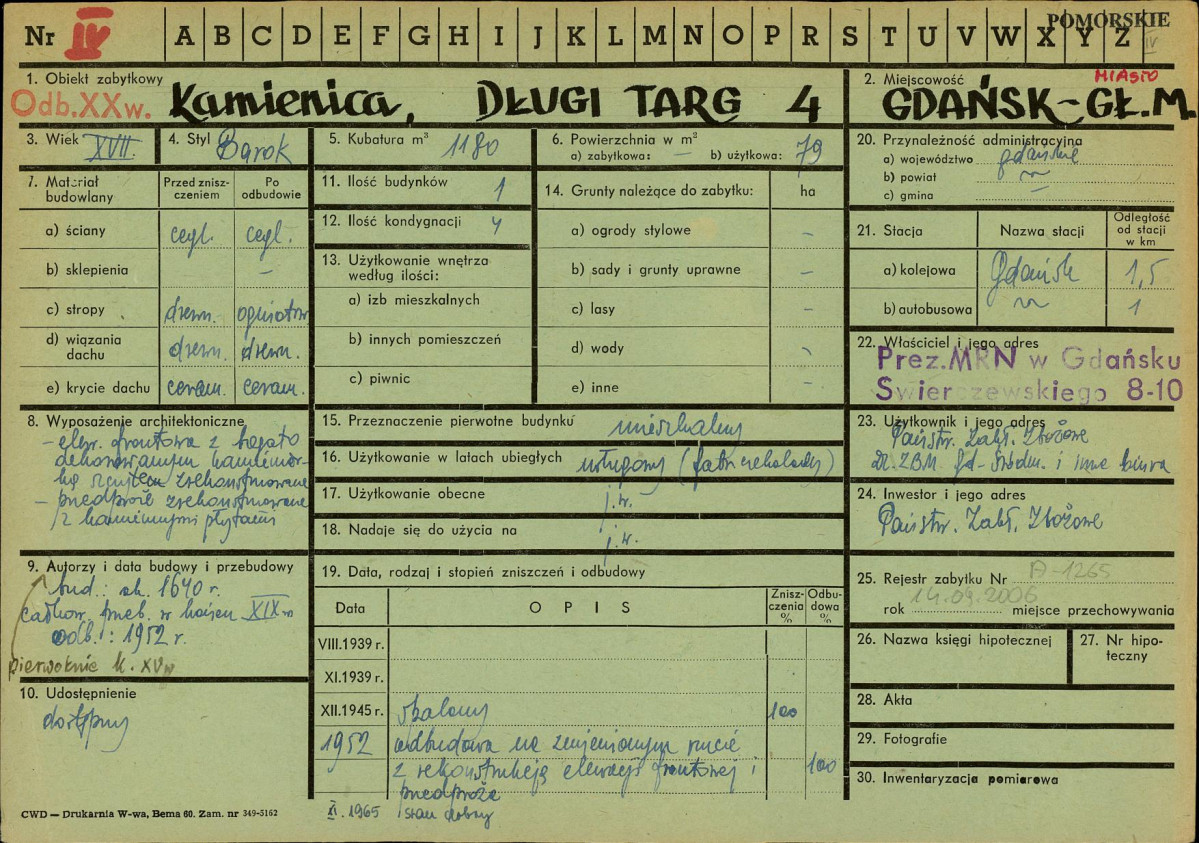 POMORSKIE
Nr IV A B C D E F G H I J K L M N O P R S T U V W X Y Z IV
1. Obiekt zabytkowy
Odb. XX w. Kamienica, DŁUGI TARG 4
2. Miejscowość MIASTO
GDAŃSK-GŁ.M.
3. Wiek XVII.
4. Styl Barok
5. Kubatura m³ 1180
6. Powierzchnia w m²
a) zabytkowa: — b) użytkowa: 79
7. Materiał budowlany
Przed zniszczeniem
Po odbudowie
a) ściany cegl. cegl.
b) sklepienia —
c) stropy drewn. ogniotrw
d) wiązania dachu drewn. drewn.
e) krycie dachu ceram. ceram.
8. Wyposażenie architektoniczne
- elew. frontowa z bogato
dekorowanym kamieniar-
ką szczytem zrekonstruowana
- przedproże zrekonstruowane
z kamiennymi płytami
9. Autorzy i data budowy i przebudowy
bud.: ok. 1640 r.
całkow. przeb. w końcu XIX w
odb.: 1952 r.
pierwotnie k. XVw
10. Udostępnienie
dostępny
11. Ilość budynków 1
12. Ilość kondygnacji 4
13. Użytkowanie wnętrza
według ilości:
a) izb mieszkalnych
b) innych pomieszczeń
c) piwnic
14. Grunty należące do zabytku: ha
a) ogrody stylowe –
b) sady i grunty uprawne –
c) lasy –
d) wody –
e) inne –
15. Przeznaczenie pierwotne budynku mieszkalny
16. Użytkowanie w latach ubiegłych usługowy
17. Użytkowanie obecne j.w.
18. Nadaje się do użycia na j.w.
19. Data, rodzaj i stopień zniszczeń i odbudowy
Data
OPIS
Zniszczenia %
Odbudowa %
VIII.1939 r.
XI.1939 r.
XII.1945 r. spalony 100
1952 odbudowa na zmienionym rzucie
z rekonstrukcją elewacji frontowej i 100
przedproża
XI.1965 stan dobry
20. Przynależność administracyjna
a) województwo gdańskie
b) powiat
c) gmina –
21. Stacja
Nazwa stacji
Odległość od stacji w km
a) kolejowa Gdańsk 1,5
b) autobusowa 1
22. Właściciel i jego adres
Prez. MRN w Gdańsku
Swierczewskiego 8-10
23. Użytkownik i jego adres
Państw. Zakł. Zbożowe
ZBM Gd-Śródm. i inne biura
24. Inwestor i jego adres
Państw. Zakł. Zbożowe
25. Rejestr zabytku Nr A-1265
rok 14.09.2006 miejsce przechowywania
26. Nazwa księgi hipotecznej
27. Nr hipoteczny
28. Akta
29. Fotografie
30. Inwentaryzacja pomiarowa
CWD — Drukarnia W-wa, Bema 60. Zam. nr 349-5162